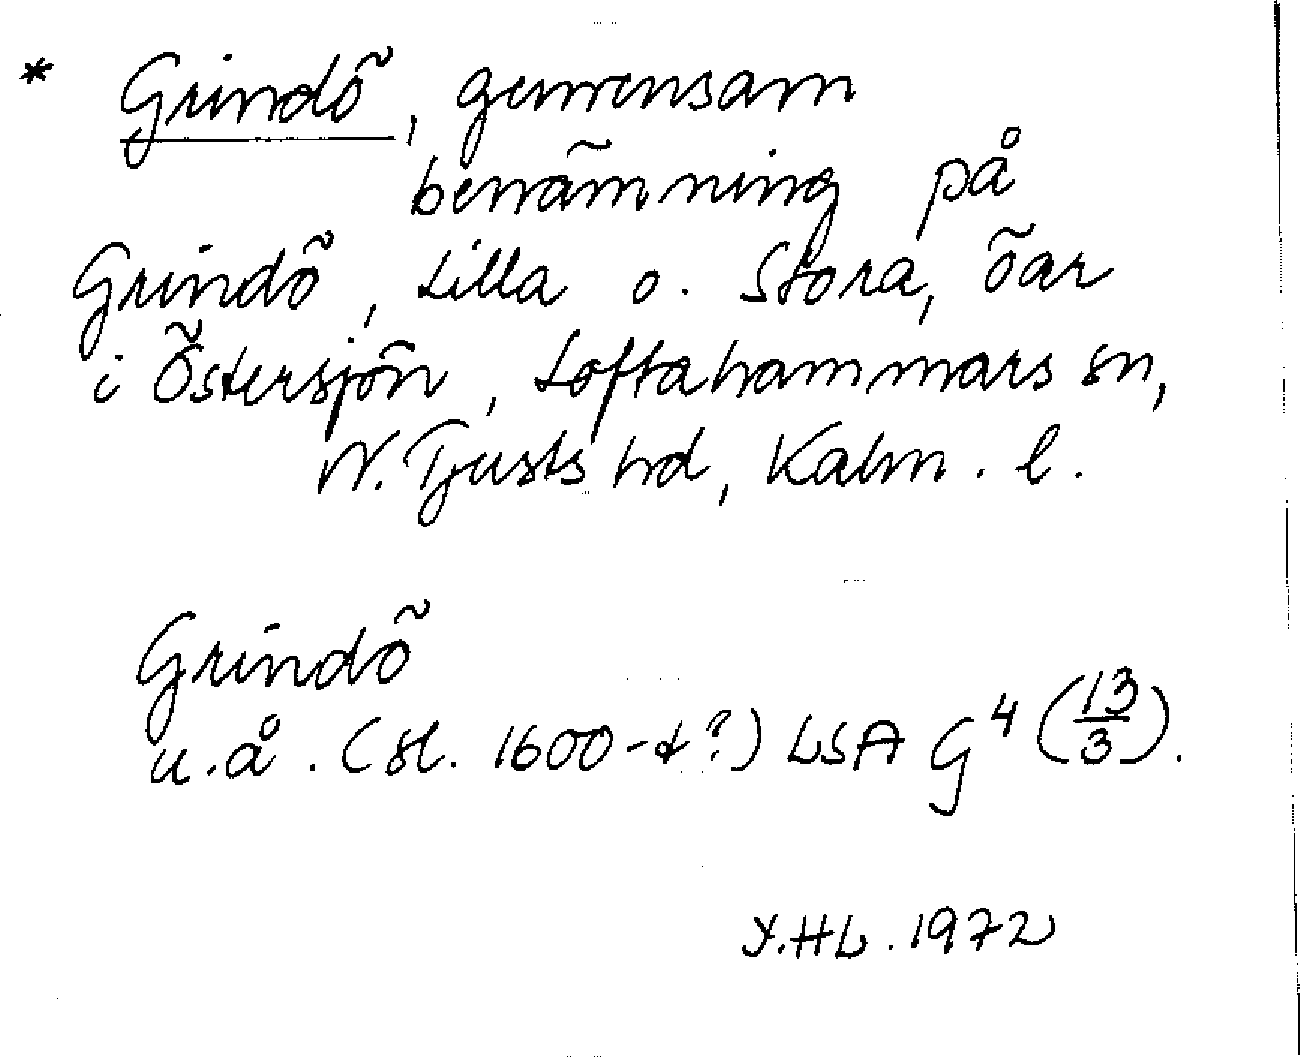 * Grindö, gemensam
benämning på
Grindö, Lilla o. Stora, öar
i Östersjön, Loftahammars sn,
N. Tjusts hd, Kalm. l.
Grindö
u.å. (sl. 1600-t?) LSA G⁴ (13/3).
Y.HL. 1972